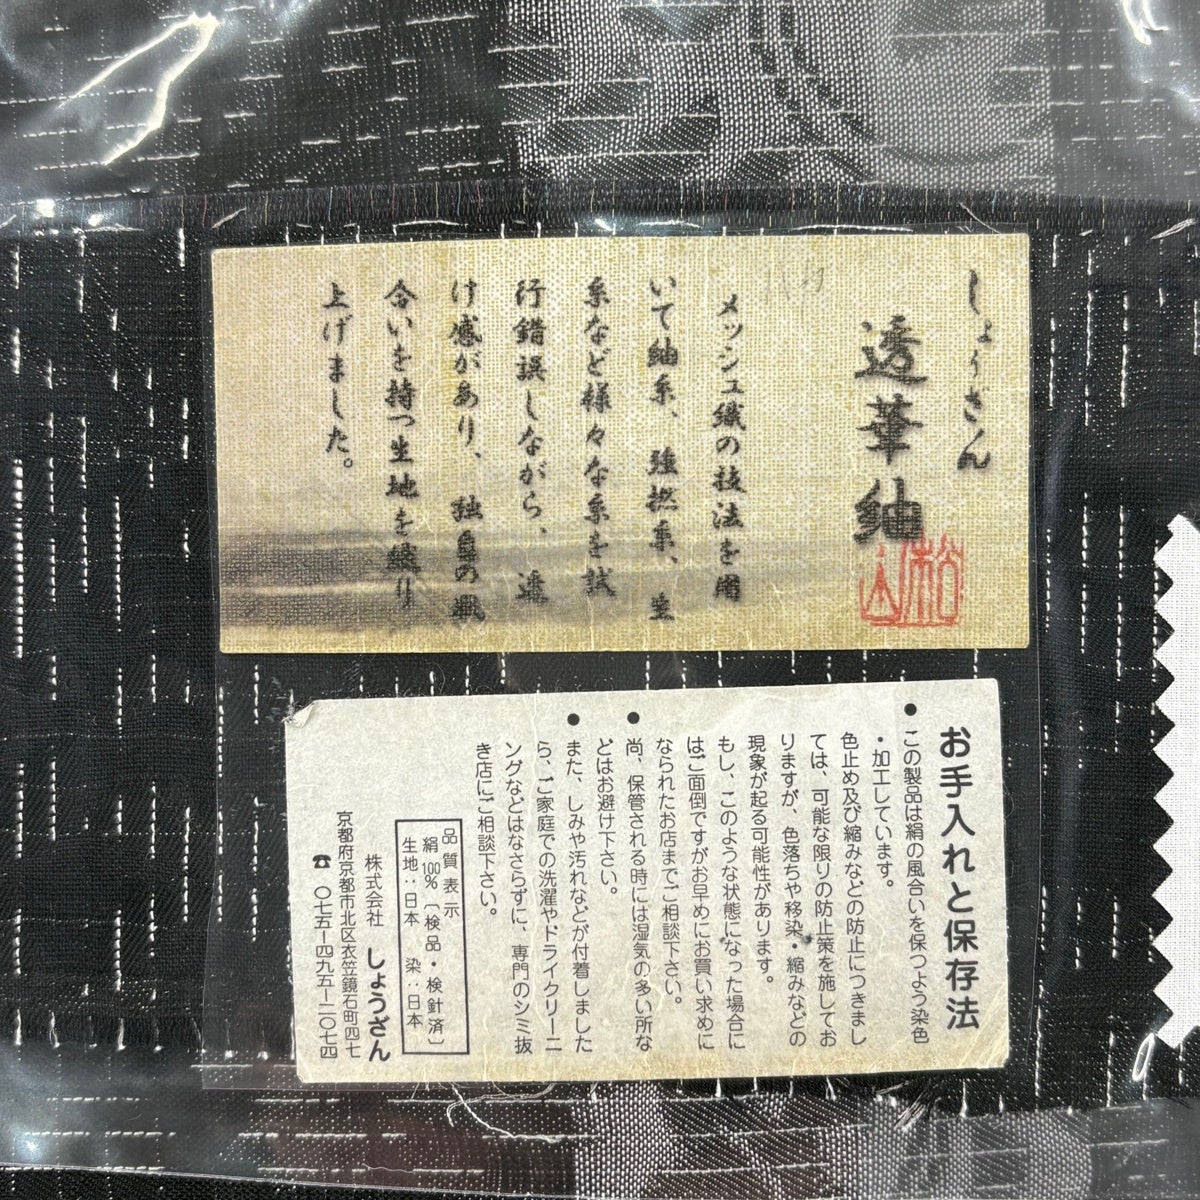 しょうざん
透華紬
松山
メッシュ織の技法を用
いて紬糸、強撚糸、生
糸など様々な糸を試
行錯誤しながら、透
け感があり、独自の風
合いを持つ生地を織り
上げました。
お手入れと保存法
●この製品は絹の風合いを保つよう染色
・加工しています。
色止め及び縮みなどの防止につきまし
ては、可能な限りの防止策を施してお
りますが、色落ちや移染・縮みなどの
現象が起る可能性があります。
もし、このような状態になった場合に
はご面倒ですがお早めにお買い求めに
なられたお店までご相談下さい。
●尚、保管される時には湿気の多い所な
どはお避け下さい。
●また、しみや汚れなどが付着しました
ら、ご家庭での洗濯やドライクリーニ
ングなどはなさらずに、専門のシミ抜
き店にご相談下さい。
品質表示
絹100%〔検品・検針済〕
生地：日本　染：日本
株式会社 しょうざん
京都府京都市北区衣笠鏡石町四七
☎〇七五−四九五−二〇七四